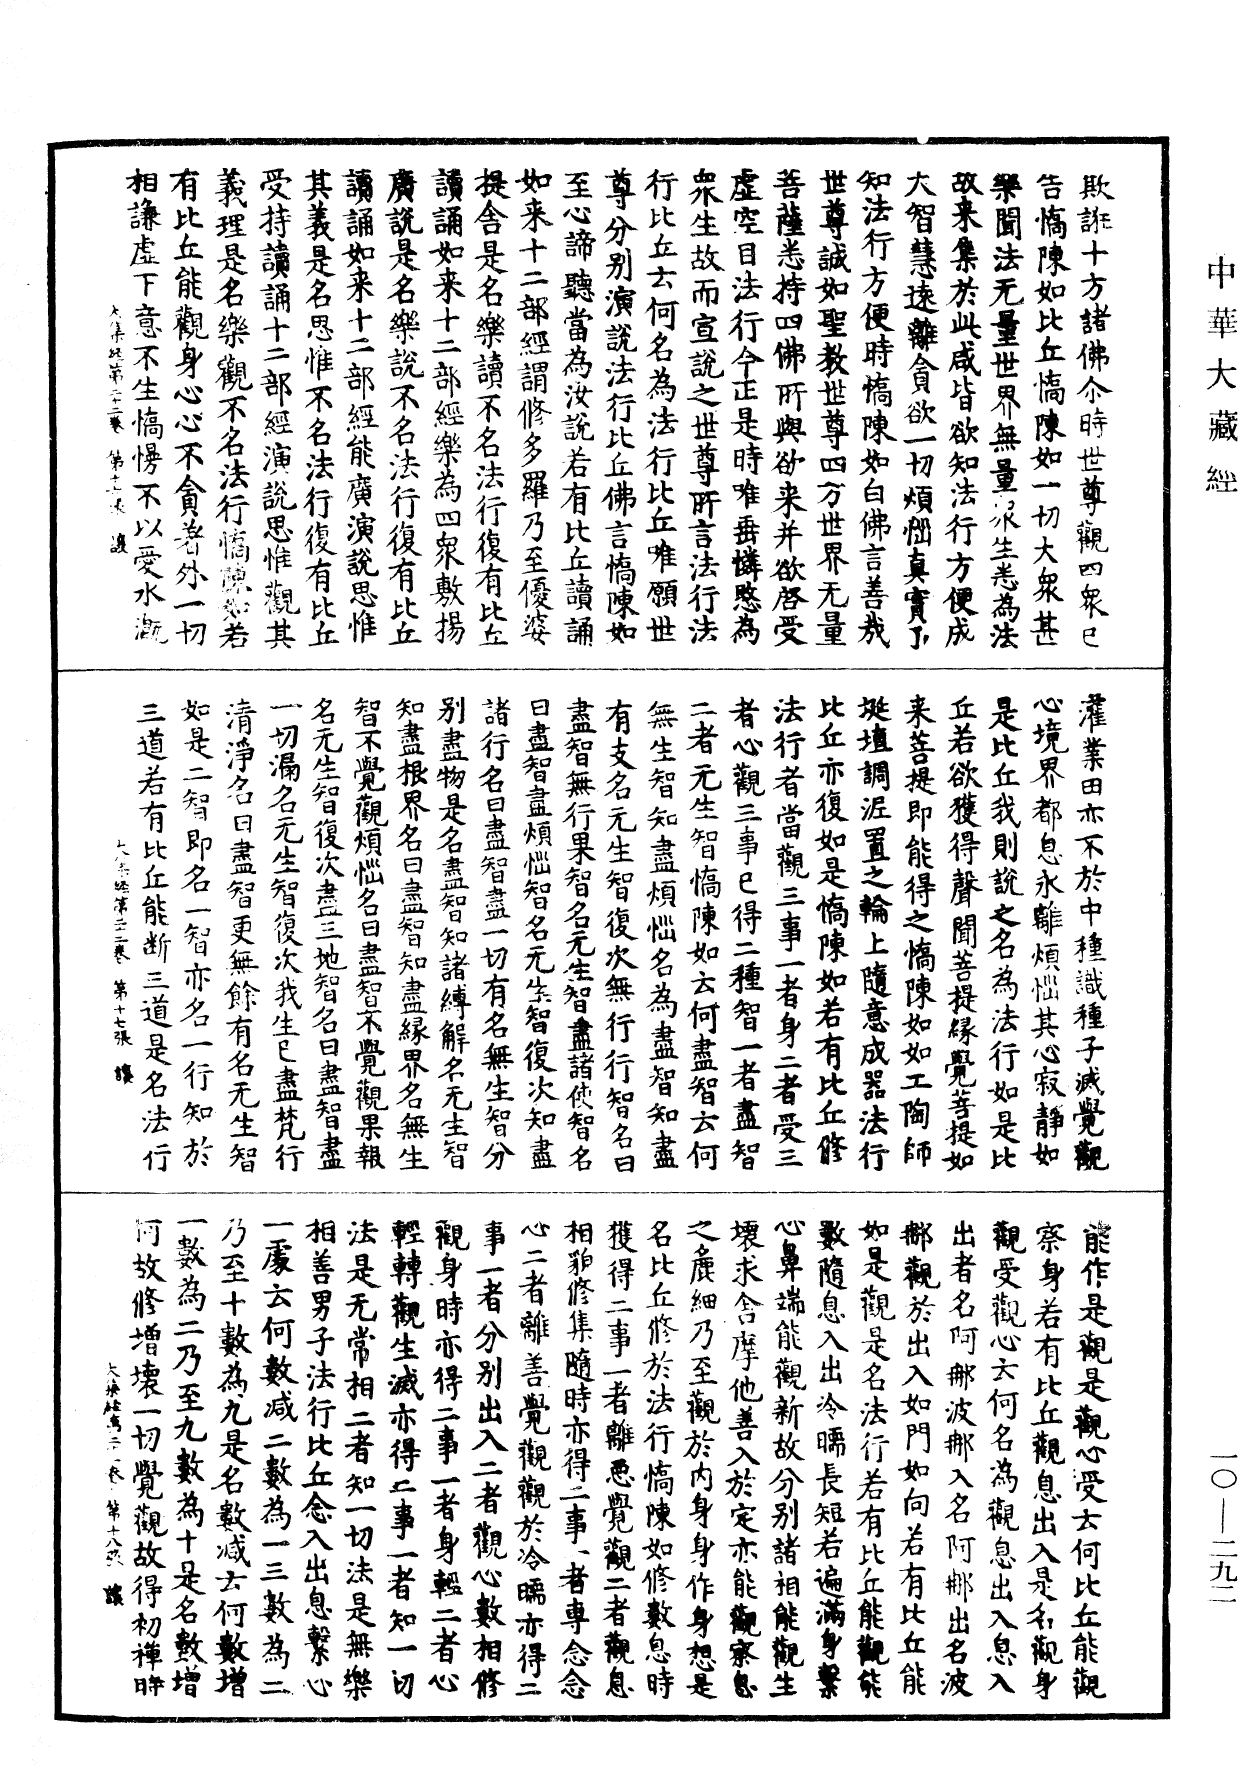 中華大藏經
欺誑十方諸佛尒時世尊觀四衆已
告憍陳如比丘憍陳如一切大衆甚
樂聞法无量世界無量衆生悉為法
故来集於此咸皆欲知法行方便成
大智慧遠離貪欲一切煩惱真實了
知法行方便時憍陳如白佛言善哉
世尊誠如聖教世尊四方世界无量
菩薩悉持四佛所與欲来并欲啓受
虛空目法行今正是時唯垂憐愍為
衆生故而宣說之世尊所言法行法
行比丘云何名為法行比丘唯願世
尊分別演說法行比丘佛言憍陳如
至心諦聽當為汝說若有比丘讀誦
如来十二部經謂修多羅乃至優婆
提舍是名樂讀不名法行復有比丘
讀誦如来十二部經樂為四衆敷揚
廣說是名樂說不名法行復有比丘
讀誦如来十二部經能廣演說思惟
其義是名思惟不名法行復有比丘
受持讀誦十二部經演說思惟觀其
義理是名樂觀不名法行憍陳如若
有比丘能觀身心心不貪著外一切
相謙虛下意不生憍慢不以愛水漑
大集經第二十二卷　第十六張　讓
灌業田亦不於中種識種子滅覺觀
心境界都息永離煩惱其心寂靜如
是比丘我則說之名為法行如是比
丘若欲獲得聲聞菩提緣覺菩提如
来菩提即能得之憍陳如如工陶師
埏埴調泥置之輪上隨意成器法行
比丘亦復如是憍陳如若有比丘修
法行者當觀三事一者身二者受三
者心觀三事已得二種智一者盡智
二者无生智憍陳如云何盡智云何
無生智知盡煩惱名為盡智知盡
有支名无生智復次無行行智名曰
盡智無行果智名无生智盡諸使智名
曰盡智盡煩惱智名无生智復次知盡
諸行名曰盡智盡一切有名無生智分
別盡物是名盡智知諸縛解名无生智
知盡根界名曰盡智知盡緣界名無生
智不覺觀煩惱名曰盡智不覺觀果報
名无生智復次盡三地智名曰盡智盡
一切漏名无生智復次我生已盡梵行
清淨名曰盡智更無餘有名无生智
如是二智即名一智亦名一行知於
三道若有比丘能断三道是名法行
大集經第二十二卷　第十七張　讓
能作是觀是觀心受云何比丘能觀
察身若有比丘觀息出入是名觀身
觀受觀心云何名為觀息出入息入
出者名阿那波那入名阿那出名波
那觀於出入如門如向若有比丘能
如是觀是名法行若有比丘能觀能
數隨息入出冷暖長短若遍滿身繫
心鼻端能觀新故分別諸相能觀生
壞求舍摩他善入於定亦能觀察息
之麁細乃至觀於內身身作身想是
名比丘修於法行憍陳如修數息時
獲得二事一者離惡覺觀二者觀息
相貌修集隨時亦得二事一者專念念
心二者離善覺觀觀於冷暖亦得二
事一者分別出入二者觀心數相修
觀身時亦得二事一者身輕二者心
輕轉觀生滅亦得二事一者知一切
法是无常相二者知一切法是無樂
相善男子法行比丘念入出息繫心
一處云何數減二數為一三數為二
乃至十數為九是名數減云何數增
一數為二乃至九數為十是名數增
何故修增壞一切覺觀故得初禪時
大集經第二十二卷　第十八張　讓
一〇—二九二